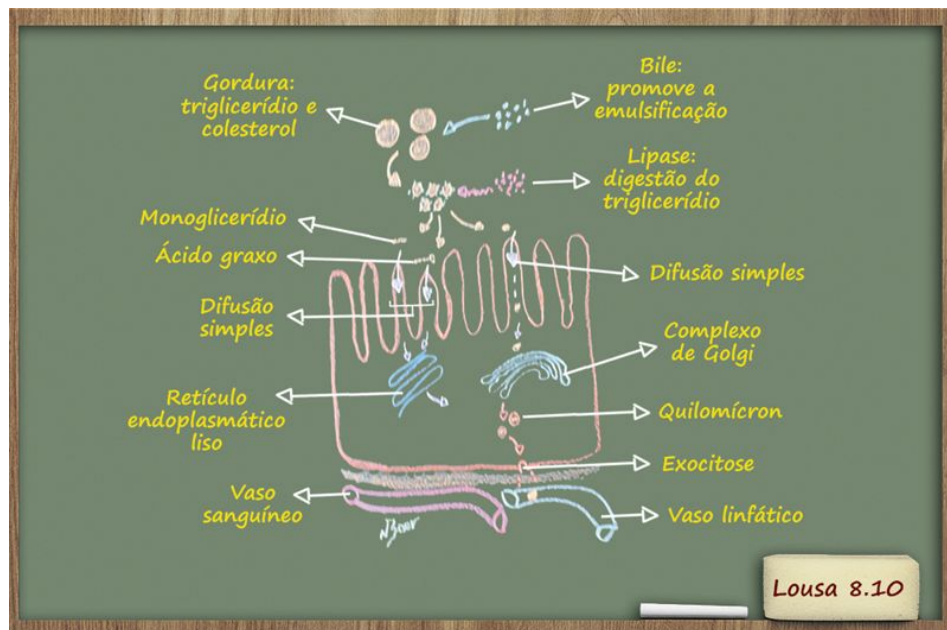 Gordura:
triglicerídio e
colesterol
Bile:
promove a
emulsificação
Lipase:
digestão do
triglicerídio
Monoglicerídio
Ácido graxo
Difusão simples
Difusão
simples
Complexo
de Golgi
Retículo
endoplasmático
liso
Quilomícron
Exocitose
Vaso
sanguíneo
Vaso linfático
Lousa 8.10